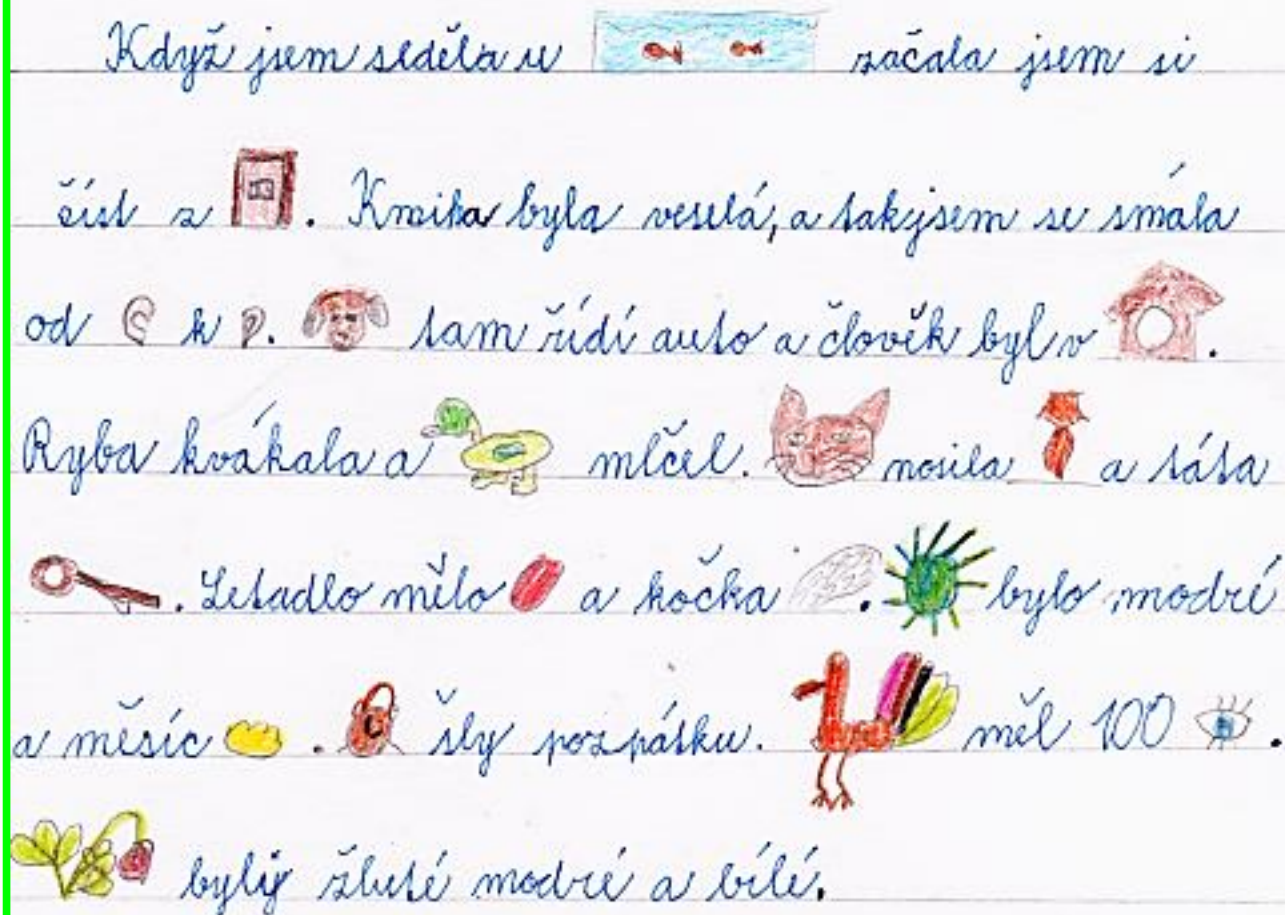 Když jsem seděla u začala jsem si
číst z . Knika byla veselá, a takjsem se smála
od k . tam řídí auto a člověk byl v .
Ryba kvákala a mlčel. nosila a táta
. Letadlo mělo a kočka . bylo modré
a měsíc . šly pozpátku. měl 100 .
byly žluté modré a bílé.